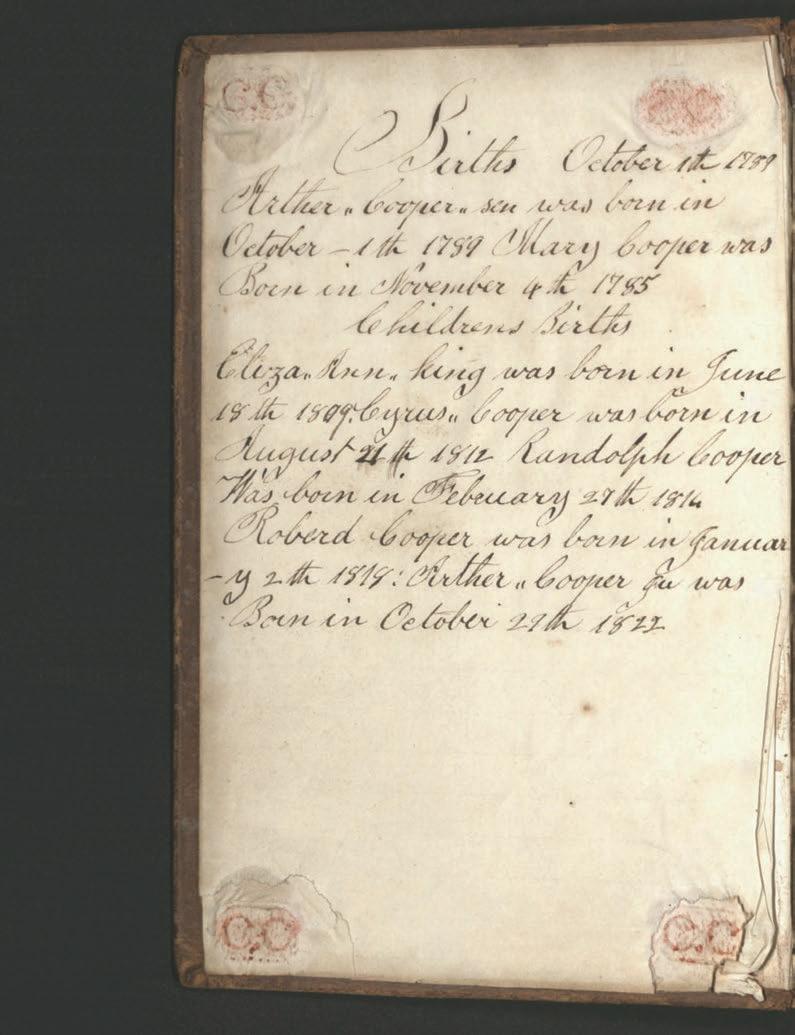 C.C.
Births October 1th 1789
Arther „ Cooper „ sen was born in
October – 1th 1789 Mary Cooper was
Born in November 4th 1785
Childrens Births
Eliza „ Ann „ king was born in June
18th 1809: Cyrus „ Cooper was born in
August 21th 1812 Randolph Cooper
Was born in February 27th 1814
Roberd Cooper was born in Januar
-y 2th 1818: Arther „ Cooper Ju was
Born in October 22th 1822
C.C
C.C